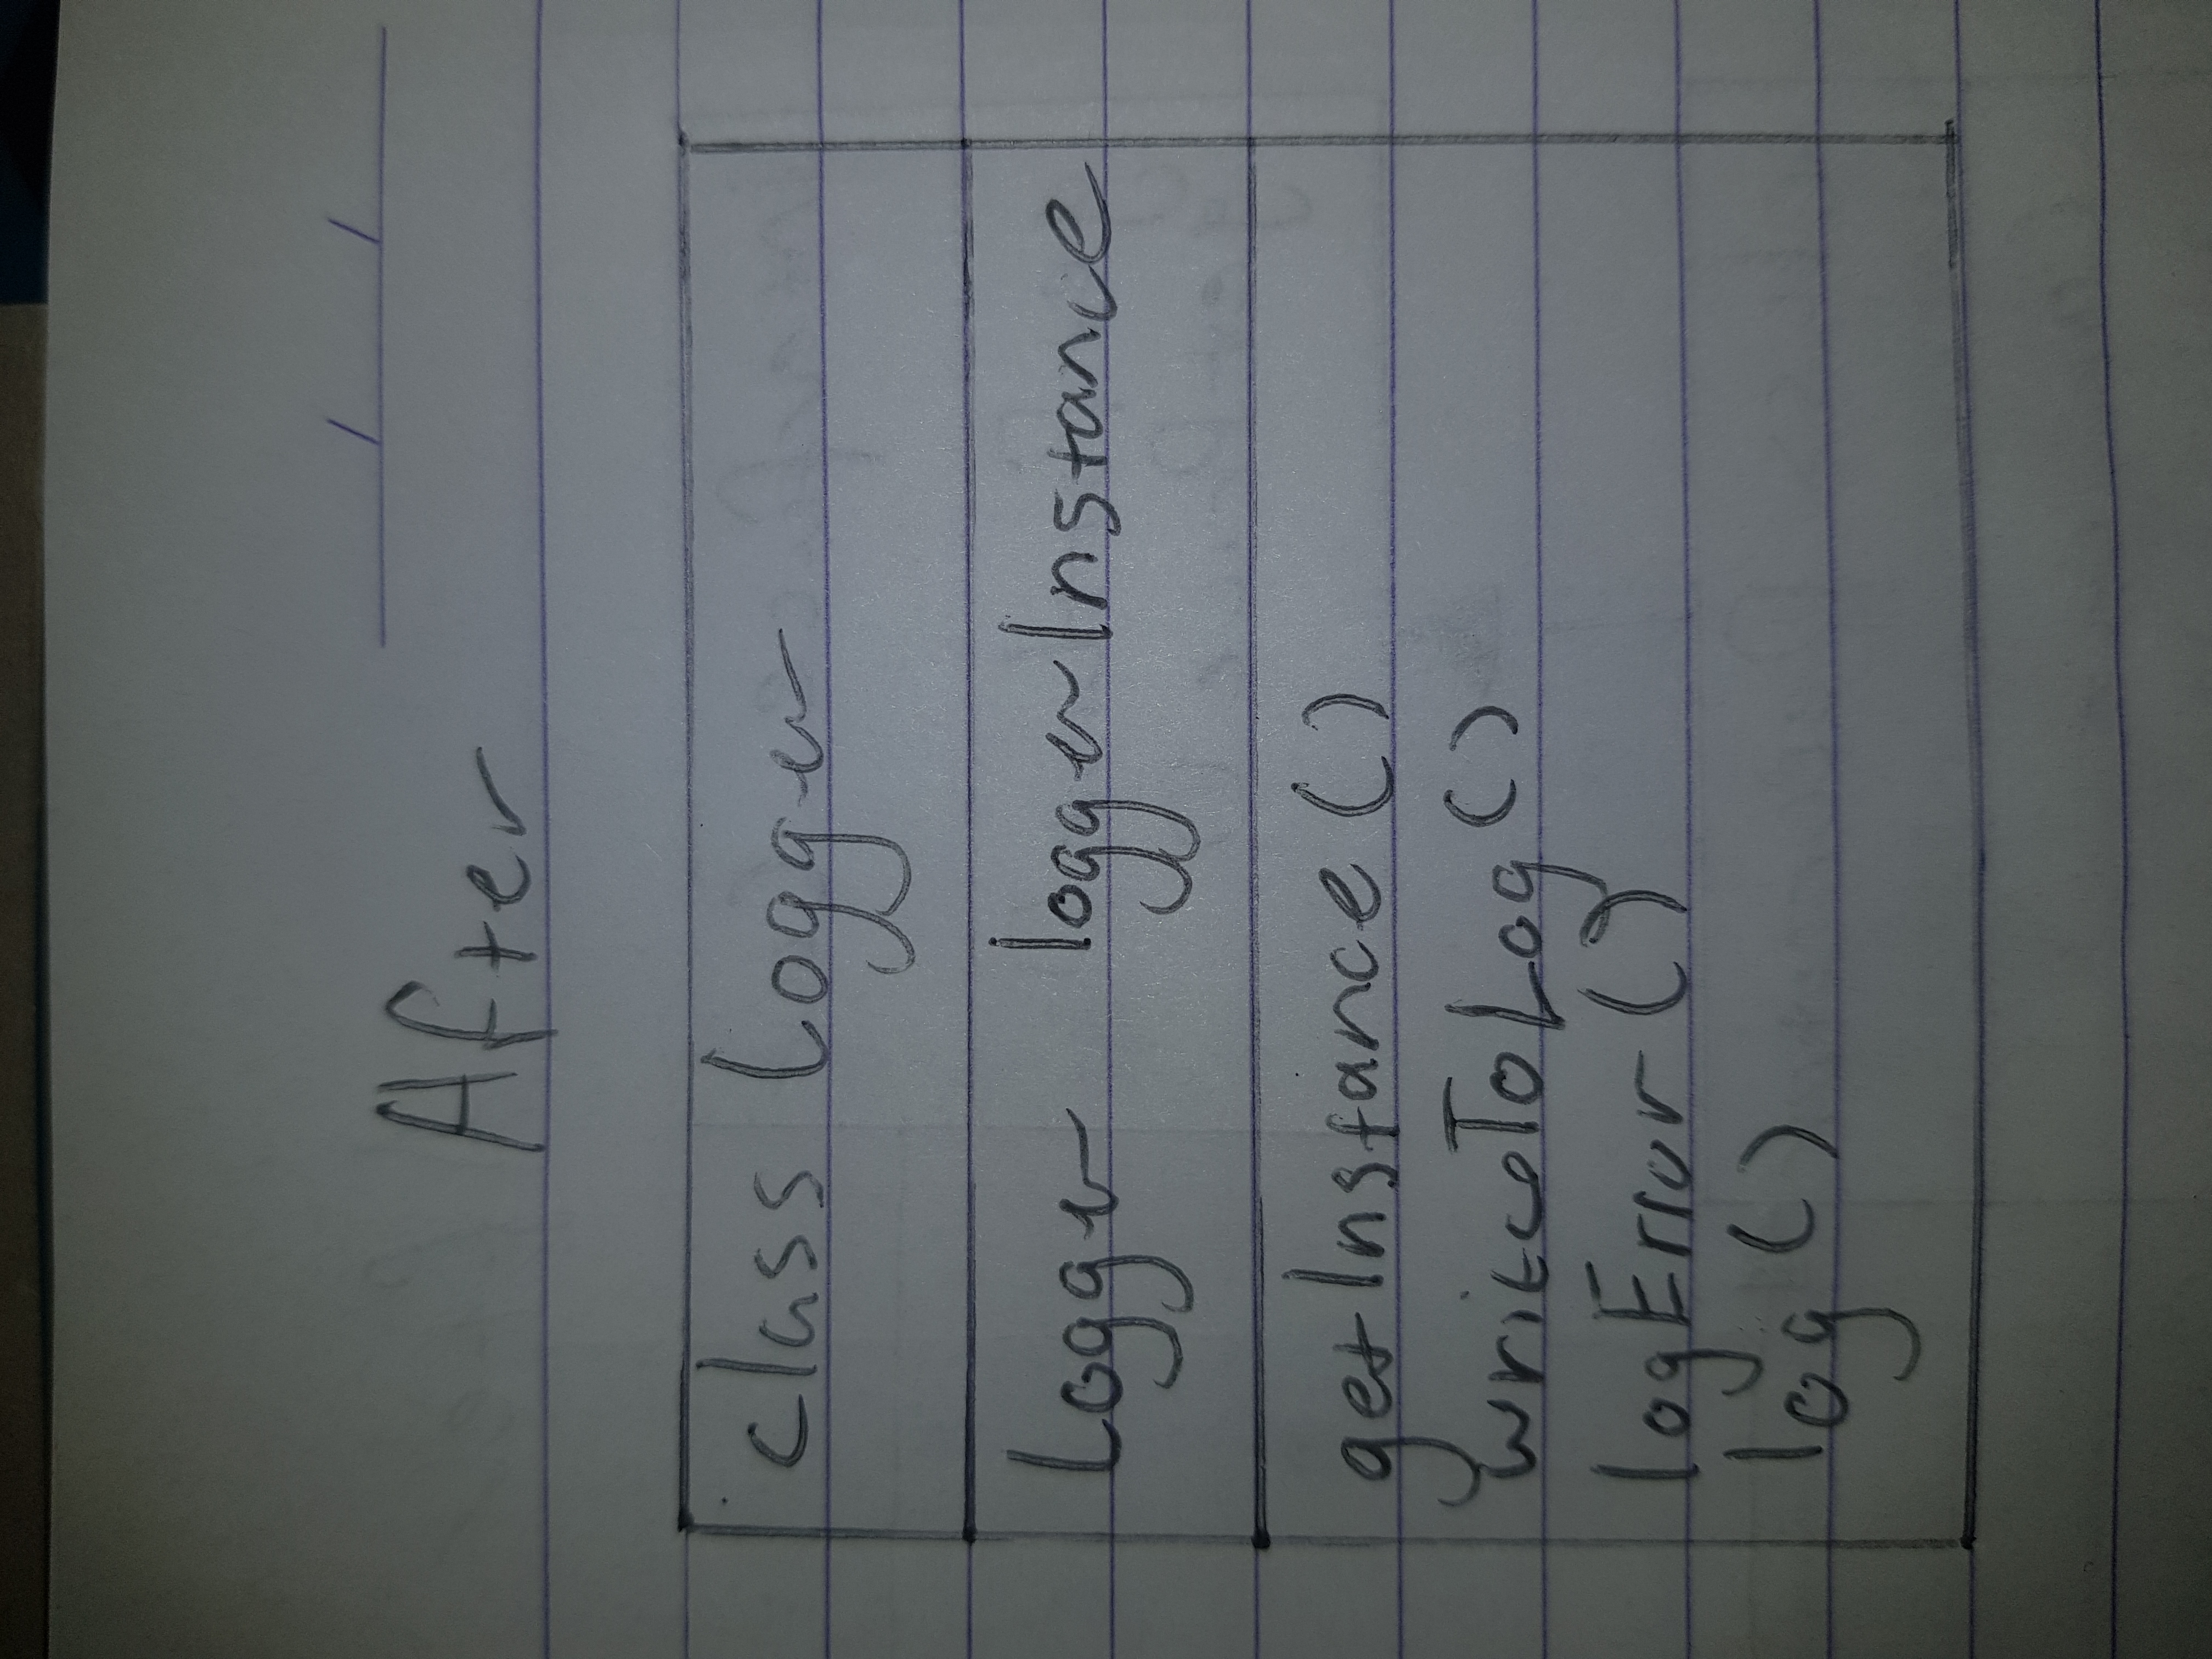 After
class Logger
Logger loggerInstance
getInstance()
writeToLog()
logError()
log()